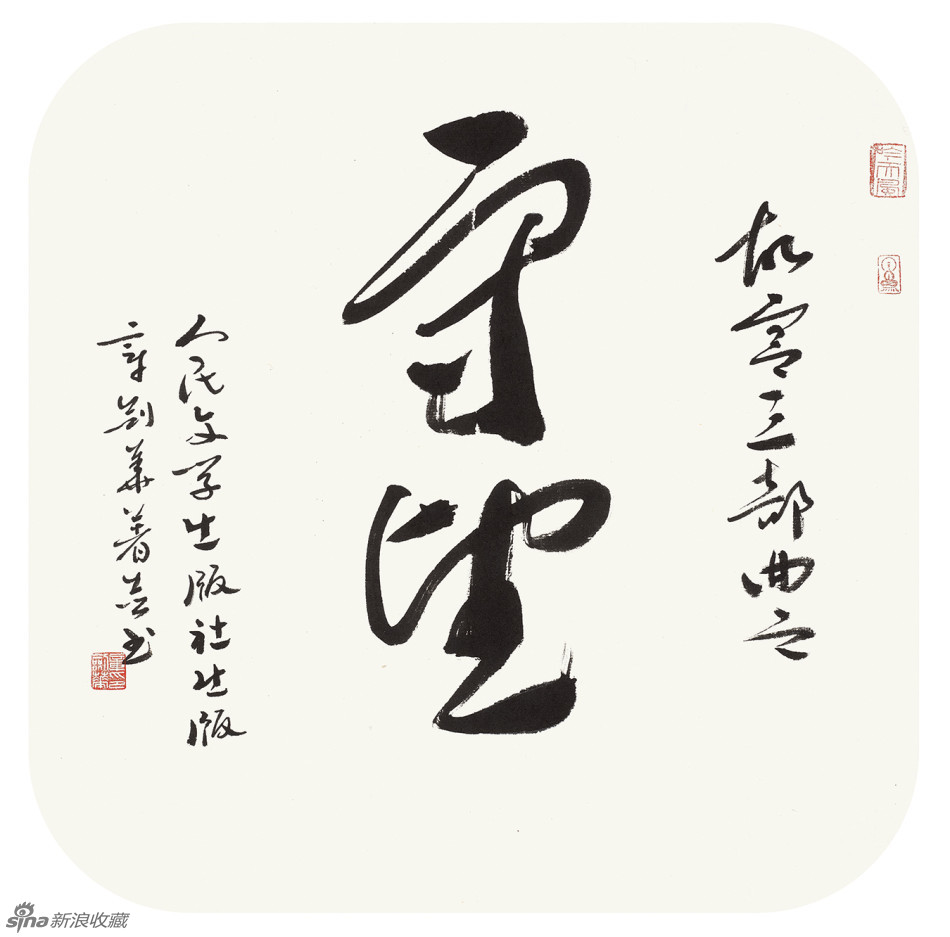 故宫三部曲之
守望
人民文学出版社出版
章剑华著并书
sina新浪收藏